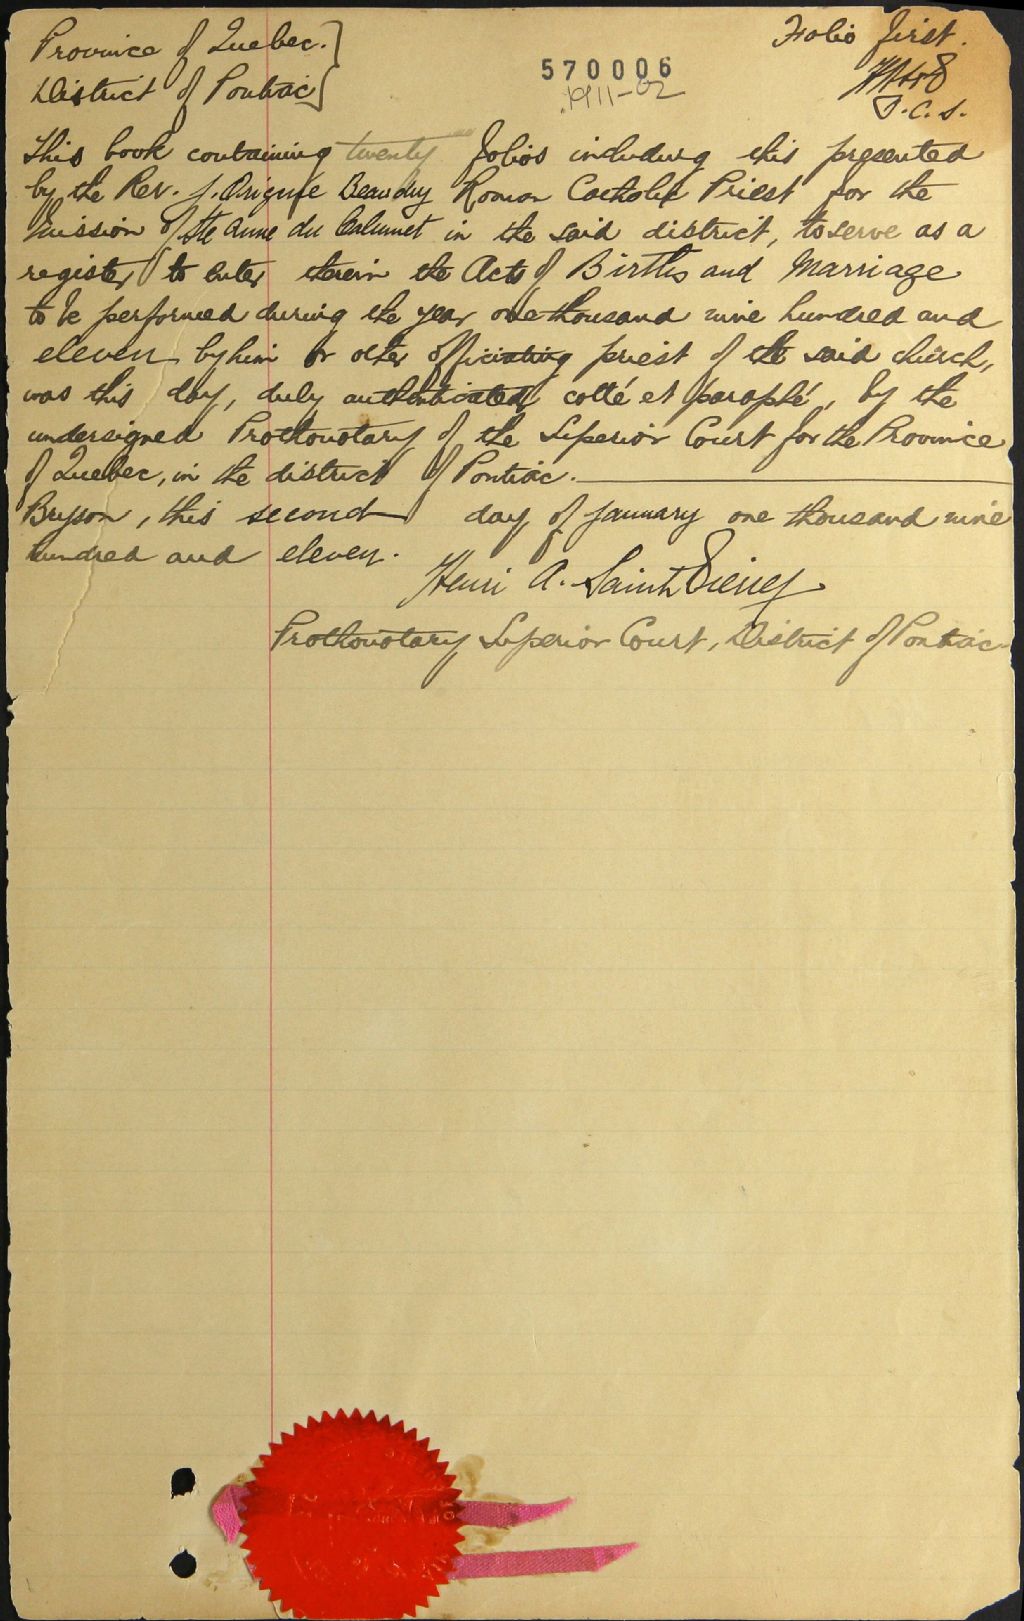 Province of Quebec.
District of Pontiac
Folio first.
570006
1911-02
P.C.S.
This book containing twenty folios including this presented
by the Rev. J. Origène Beaudry Roman Catholic Priest for the
Mission of Ste Anne du Calumet in the said district, to serve as a
register to enter therein the Acts of Births and Marriage
to be performed during the year one thousand nine hundred and
eleven by him or other officiating priest of the said church,
was this day, duly authenticated cotté et paraphé, by the
undersigned Prothonotary of the Superior Court for the Province
of Quebec, in the district of Pontiac.
Bryson, this second day of January one thousand nine
hundred and eleven.
Henri A. Saint Pierre
Prothonotary Superior Court, District of Pontiac